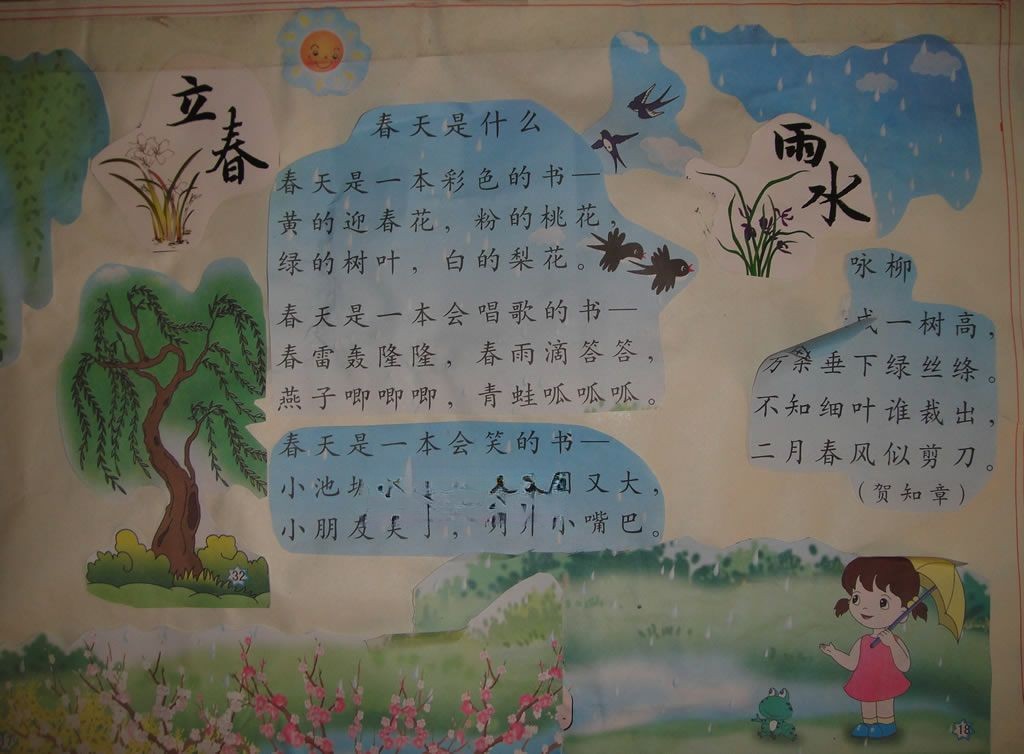 立春
春天是什么
春天是一本彩色的书—
黄的迎春花，粉的桃花，
绿的树叶，白的梨花。
春天是一本会唱歌的书—
春雷轰隆隆，春雨滴答答，
燕子唧唧唧，青蛙呱呱呱。
春天是一本会笑的书—
小池 又大，
小朋友笑了， 小嘴巴。
雨水
咏柳
成一树高，
万条垂下绿丝绦。
不知细叶谁裁出，
二月春风似剪刀。
（贺知章）
32
18